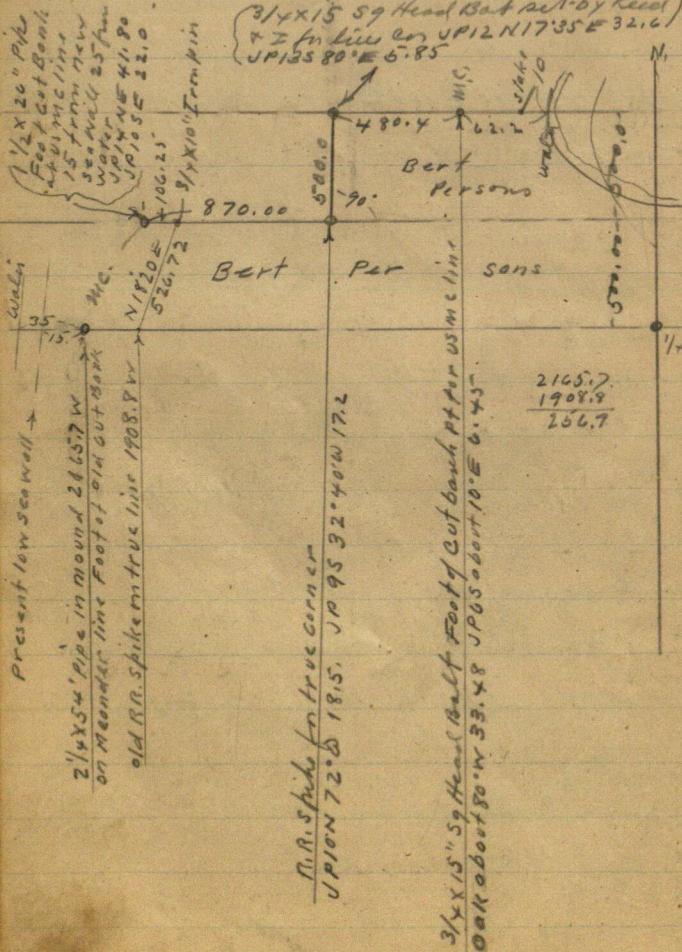 (3/4X15 Sq Head Bolt set by Reed)
& I for line cor JP12 N17°35 E 32.6
JP13 S 80°E 5.85
1 1/2 X 26" Pipe
Foot Cut Bank
at us mc line
15 from new
sea wall 25 from
water
JP14 NE 41.80
JP10 SE 22.0
106.25
3/4X10" Iron pin
870.00
500.0
90°
480.4
M.C.
62.2
stake
10
water
N.
Bert
Persons
500.00
500.0
Bert Per sons
N1820 E
526.72
M.C.
Water
35
15
1/4
2165.7
1908.8
256.9
Present low seawall →
2 1/4 X 54" Pipe in mound 2165.7 W
on Meander line Foot of old Cut Bank
old R.R. spike on true line 1908.8 W
R.R. spike for true corner
JP10 N 72° W 18.5. JP 9 S 32°40'W 17.2
3/4 X 15" Sq Head Bolt Foot of Cut bank pt for us mc line
Oak about 80°W 33.48 JP6 S about 10°E 6.45